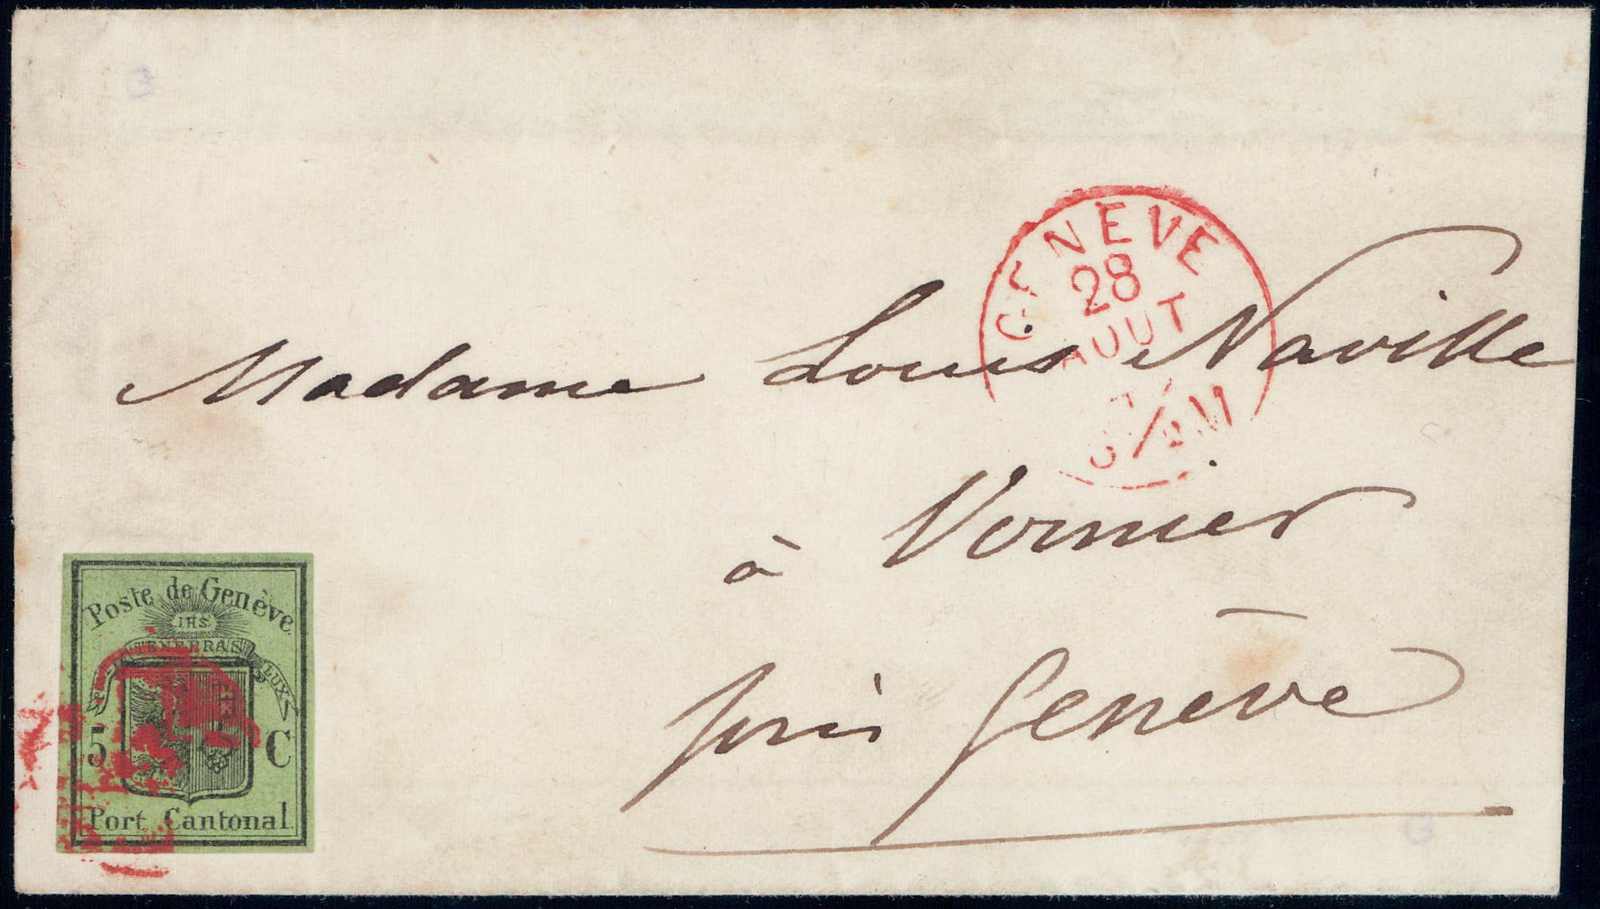 GENEVE
28
AOUT
Madame Louis Naville
à Vernier
près Genève
Poste de Genève
IHS.
POST TENEBRAS LUX
5 C
Port Cantonal